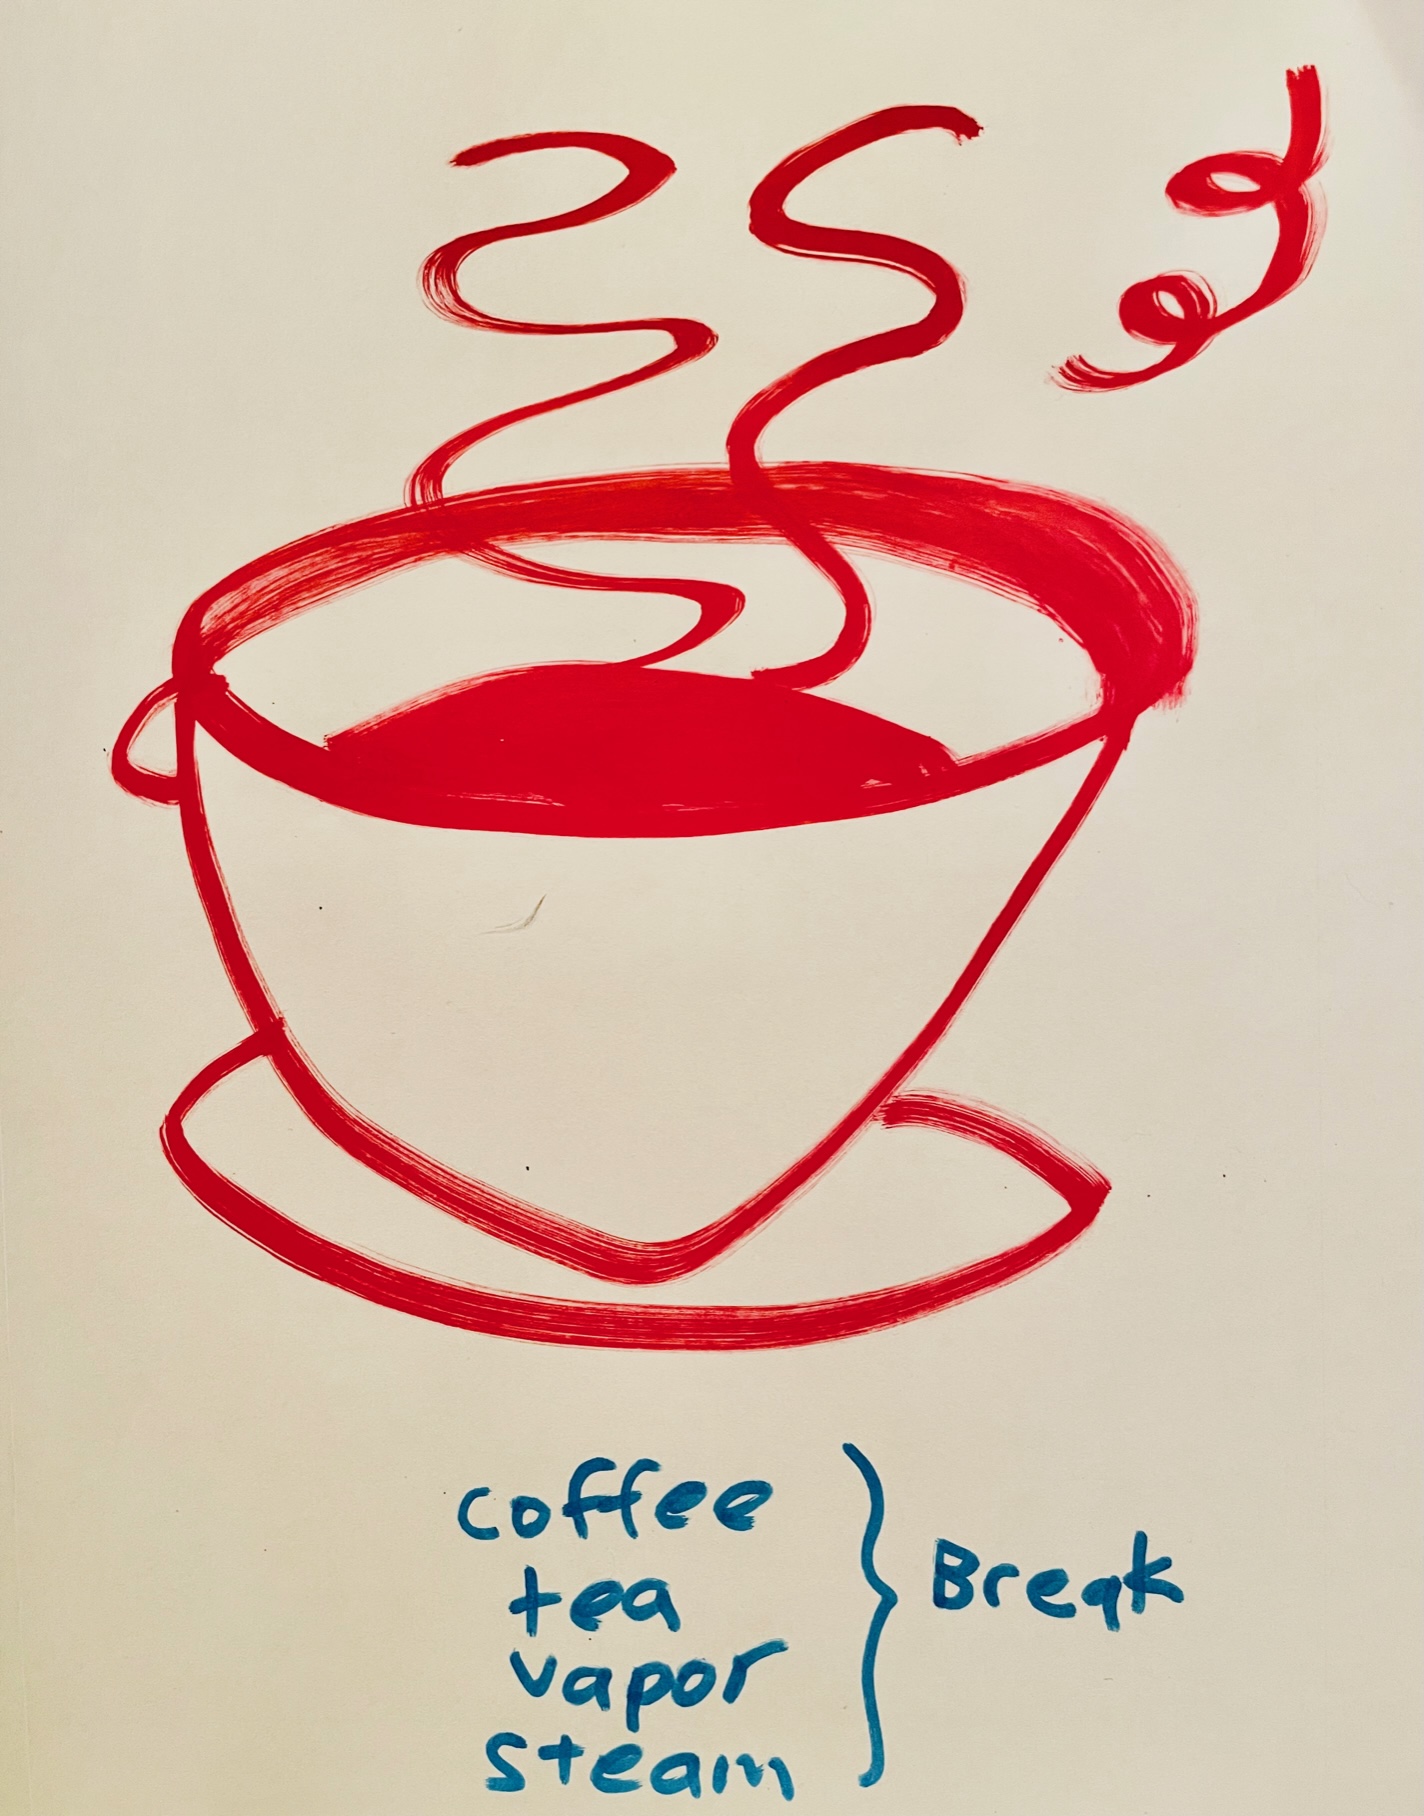 coffee
tea
vapor
steam
} Break